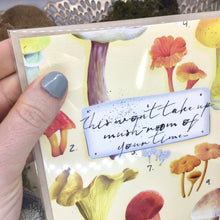 1.
this won't take up
mush-room of
your time...
2.
5.
7.